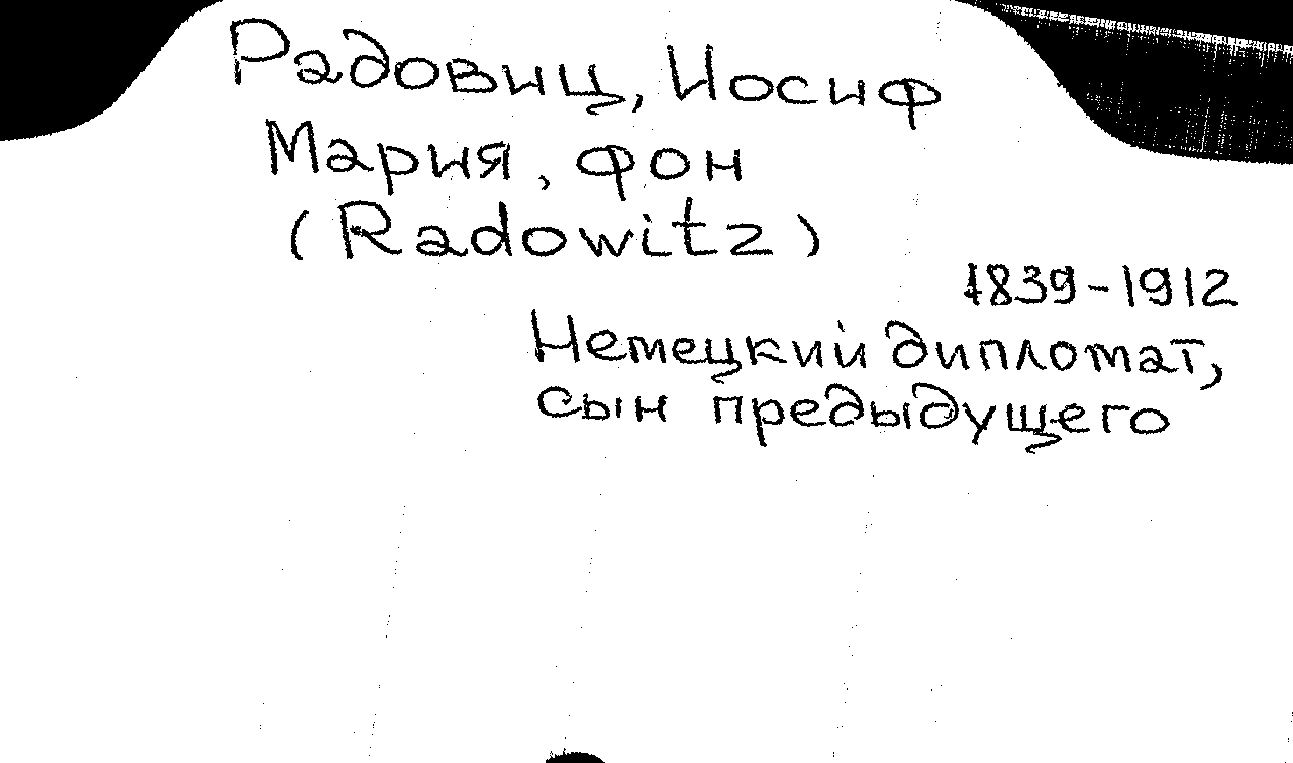 Радовиц, Иосиф
Мария, фон
(Radowitz)
1839-1912
Немецкий дипломат,
сын предыдущего